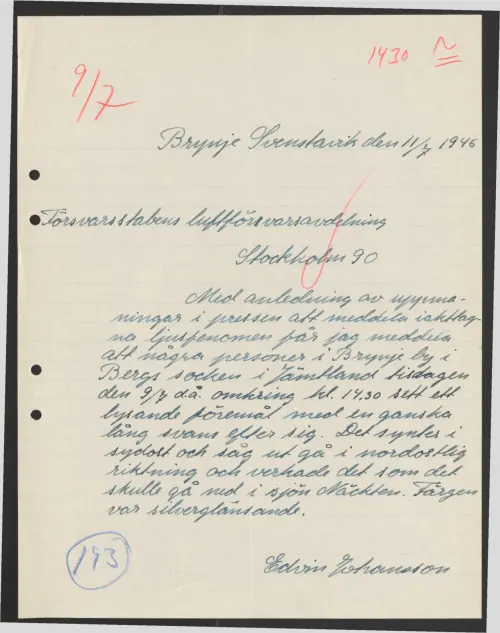 1430 ~
9/7
Brynje Svenstavik den 11/7 1946
Försvarsstabens luftförsvarsavdelning
Stockholm 90
Med anledning av uppma-
ningar i pressen att meddela iakttag-
na ljusfenomen får jag meddela
att några personer i Brynje by i
Bergs socken i Jämtland tisdagen
den 9/7 d.å. omkring kl. 14.30 sett ett
lysande föremål med en ganska
lång svans efter sig. Det syntes i
sydost och såg ut gå i nordostlig
riktning och verkade det som det
skulle gå ned i sjön Näckten. Färgen
var silverglänsande.
Edvin Johansson
193